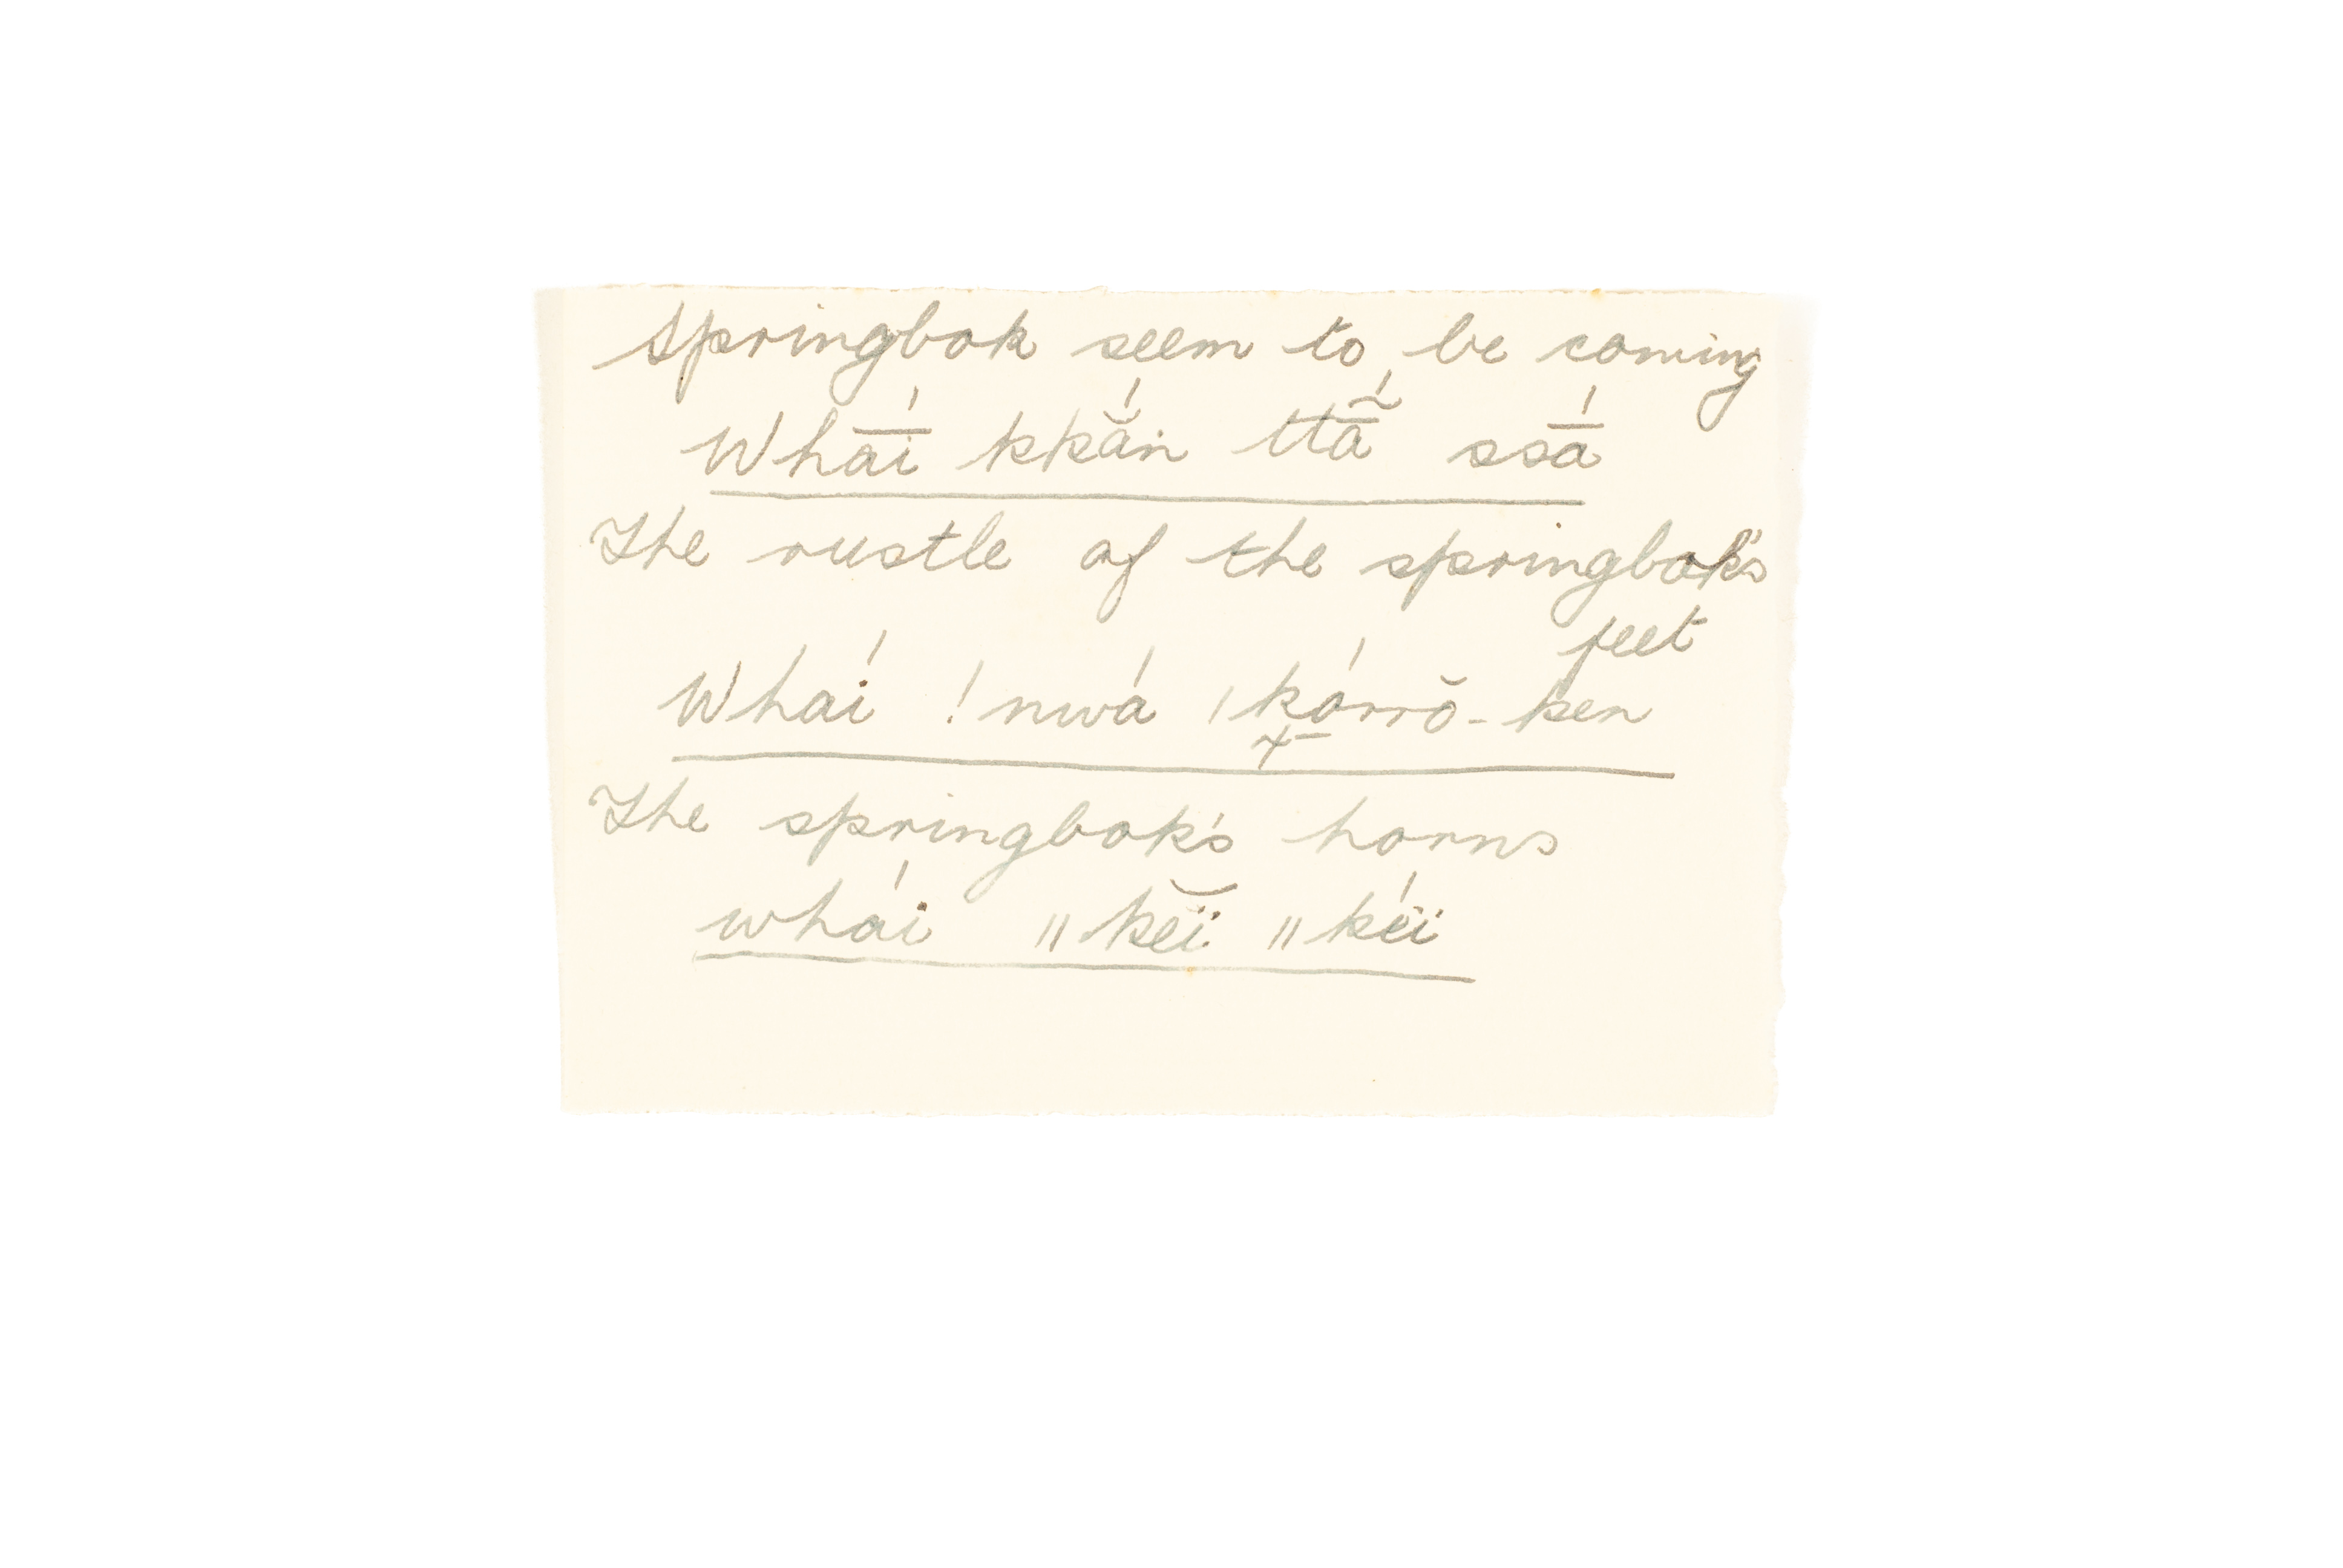 Springbok seem to be coming
Whā́i kkắn ttā̃́ ssā́
The rustle of the springbok's
feet
Whaí !nwá |kórrŏ-ken
The springbok's horns
whái ||kĕï ||kéï